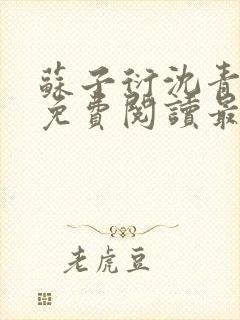 蘇子衍沈青
免費閱讀最
老虎豆